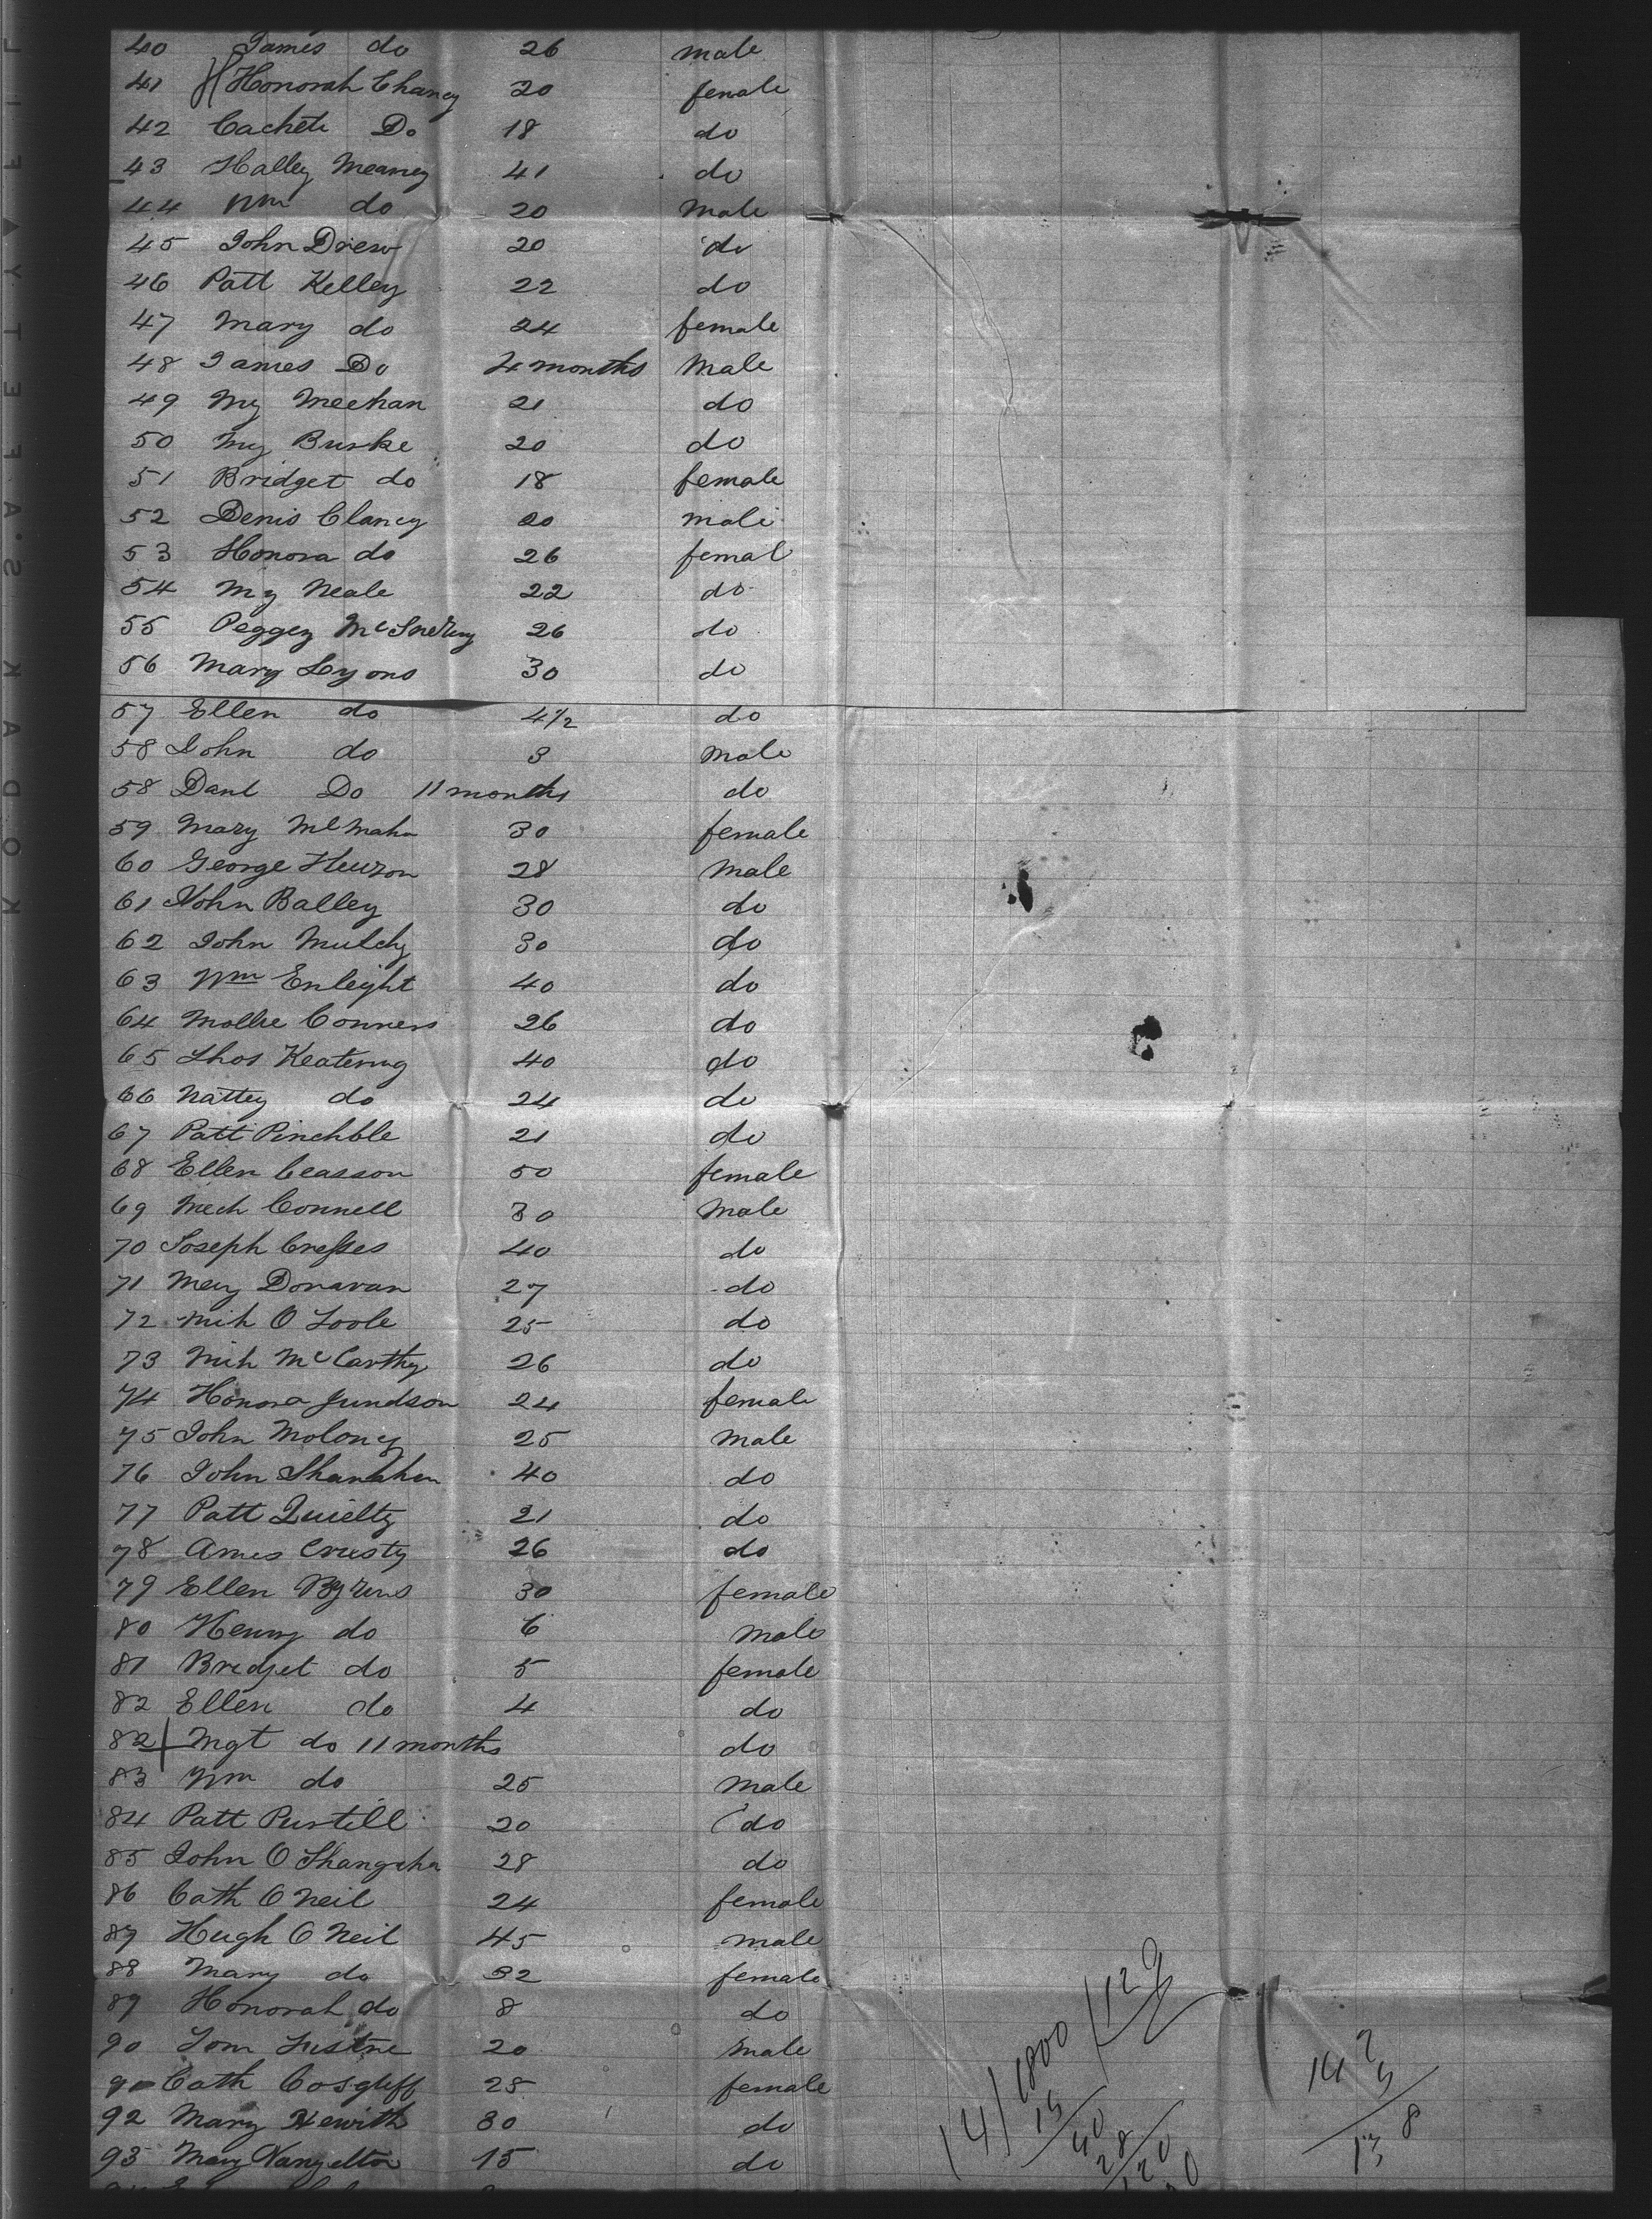 40 James do 26 male
41 Honorah Chaney 20 female
42 Cacheti Do 18 do
43 Halley Meaney 41 do
44 Wm do 20 Male
45 John Drew 20 do
46 Patt Kelley 22 do
47 Mary do 24 female
48 James Do 4 months Male
49 My Meehan 21 do
50 My Burke 20 do
51 Bridget do 18 female
52 Denis Clancy 20 male
53 Honora do 26 femal
54 My Neale 22 do
55 Peggey 26 do
56 Mary Lyons 30 do
57 Ellen do 4 1/2 do
58 John do 3 Male
58 Danl Do 11 months do
59 Mary McMahn 30 female
60 George Hewson 28 Male
61 John Balley 30 do
62 John Mulchy 30 do
63 Wm Enleight 40 do
64 Mollie Conners 26 do
65 Thos Keatenng 40 do
66 Nattey do 24 do
67 Patt Pinchble 21 do
68 Ellen Ceasson 50 female
69 Mech Connell 30 Male
70 Joseph Cresses 40 do
71 Mey Donavan 27 do
72 Mih O Toole 25 do
73 Mih McCarthy 26 do
74 Honora Jundson 24 female
75 John Moloney 25 Male
76 John Shanahen 40 do
77 Patt Quielty 21 do
78 Ames Crusty 26 do
79 Ellen Byrens 30 female
80 Henry do 6 Male
81 Bredjet do 5 female
82 Ellen do 4 do
82 Mgt do 11 months do
83 Wm do 25 Male
84 Patt Purtill 20 do
85 John O Shangehn 28 do
86 Cath O Neil 24 female
87 Hugh O Neil 45 male
88 Mary do 32 female
89 Honorah do 8 do
90 Tom 20 Male
91 Cath Cosgriff 25 female
92 Mary Hewith 30 do
93 Mary 15 do
14) 1800 (129
14
40
28
120